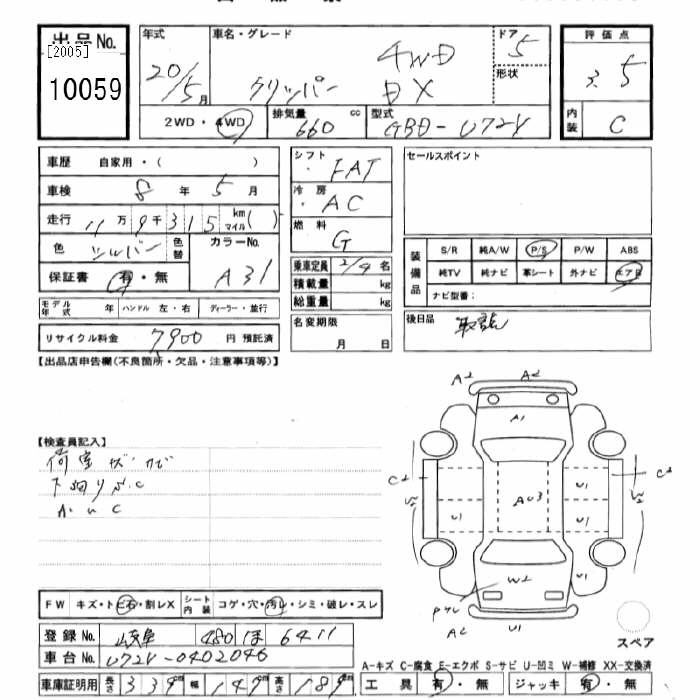 出品No.
[2005]
10059
年式
20/5月
車名・グレード
4WD
クリッパー DX
ドア
5
形状
2WD・4WD
排気量 660 cc
型式 GBD-U72V
評価点
3.5
内装
C
車歴 自家用・( )
車検 8年 5月
走行 11万9千315 km マイル( )
色 シルバー 色替
カラーNo.
A31
保証書 有・無
シフト
FAT
冷房
AC
燃料
G
乗車定員 2/4 名
積載量 kg
総重量 kg
セールスポイント
装備品
S/R 純A/W P/S P/W ABS
純TV 純ナビ 革シート 外ナビ エアB
ナビ型番:
モデル年式 年 ハンドル 左・右 ディーラー・並行
リサイクル料金 7900 円 預託済
名変期限
月 日
後日品 取説
【出品店申告欄(不良箇所・欠品・注意事項等)】
【検査員記入】
荷室 キズ・カビ
下廻りサビC
A u C
A2 A2
A1
C2 C2
U1 AU3 U1
U1 U1
W2
A2 U1
スペア
FW キズ・トビ石・割レX シート内装 コゲ・穴・汚レ・シミ・破レ・スレ
登録No. 岐阜 480 ほ 6411
車台No. U72V-0402046
車庫証明用 長さ 339 幅 147 高さ 189
A-キズ C-腐食 E-エクボ S-サビ U-凹ミ W-補修 XX-交換済
工具 有・無 ジャッキ 有・無